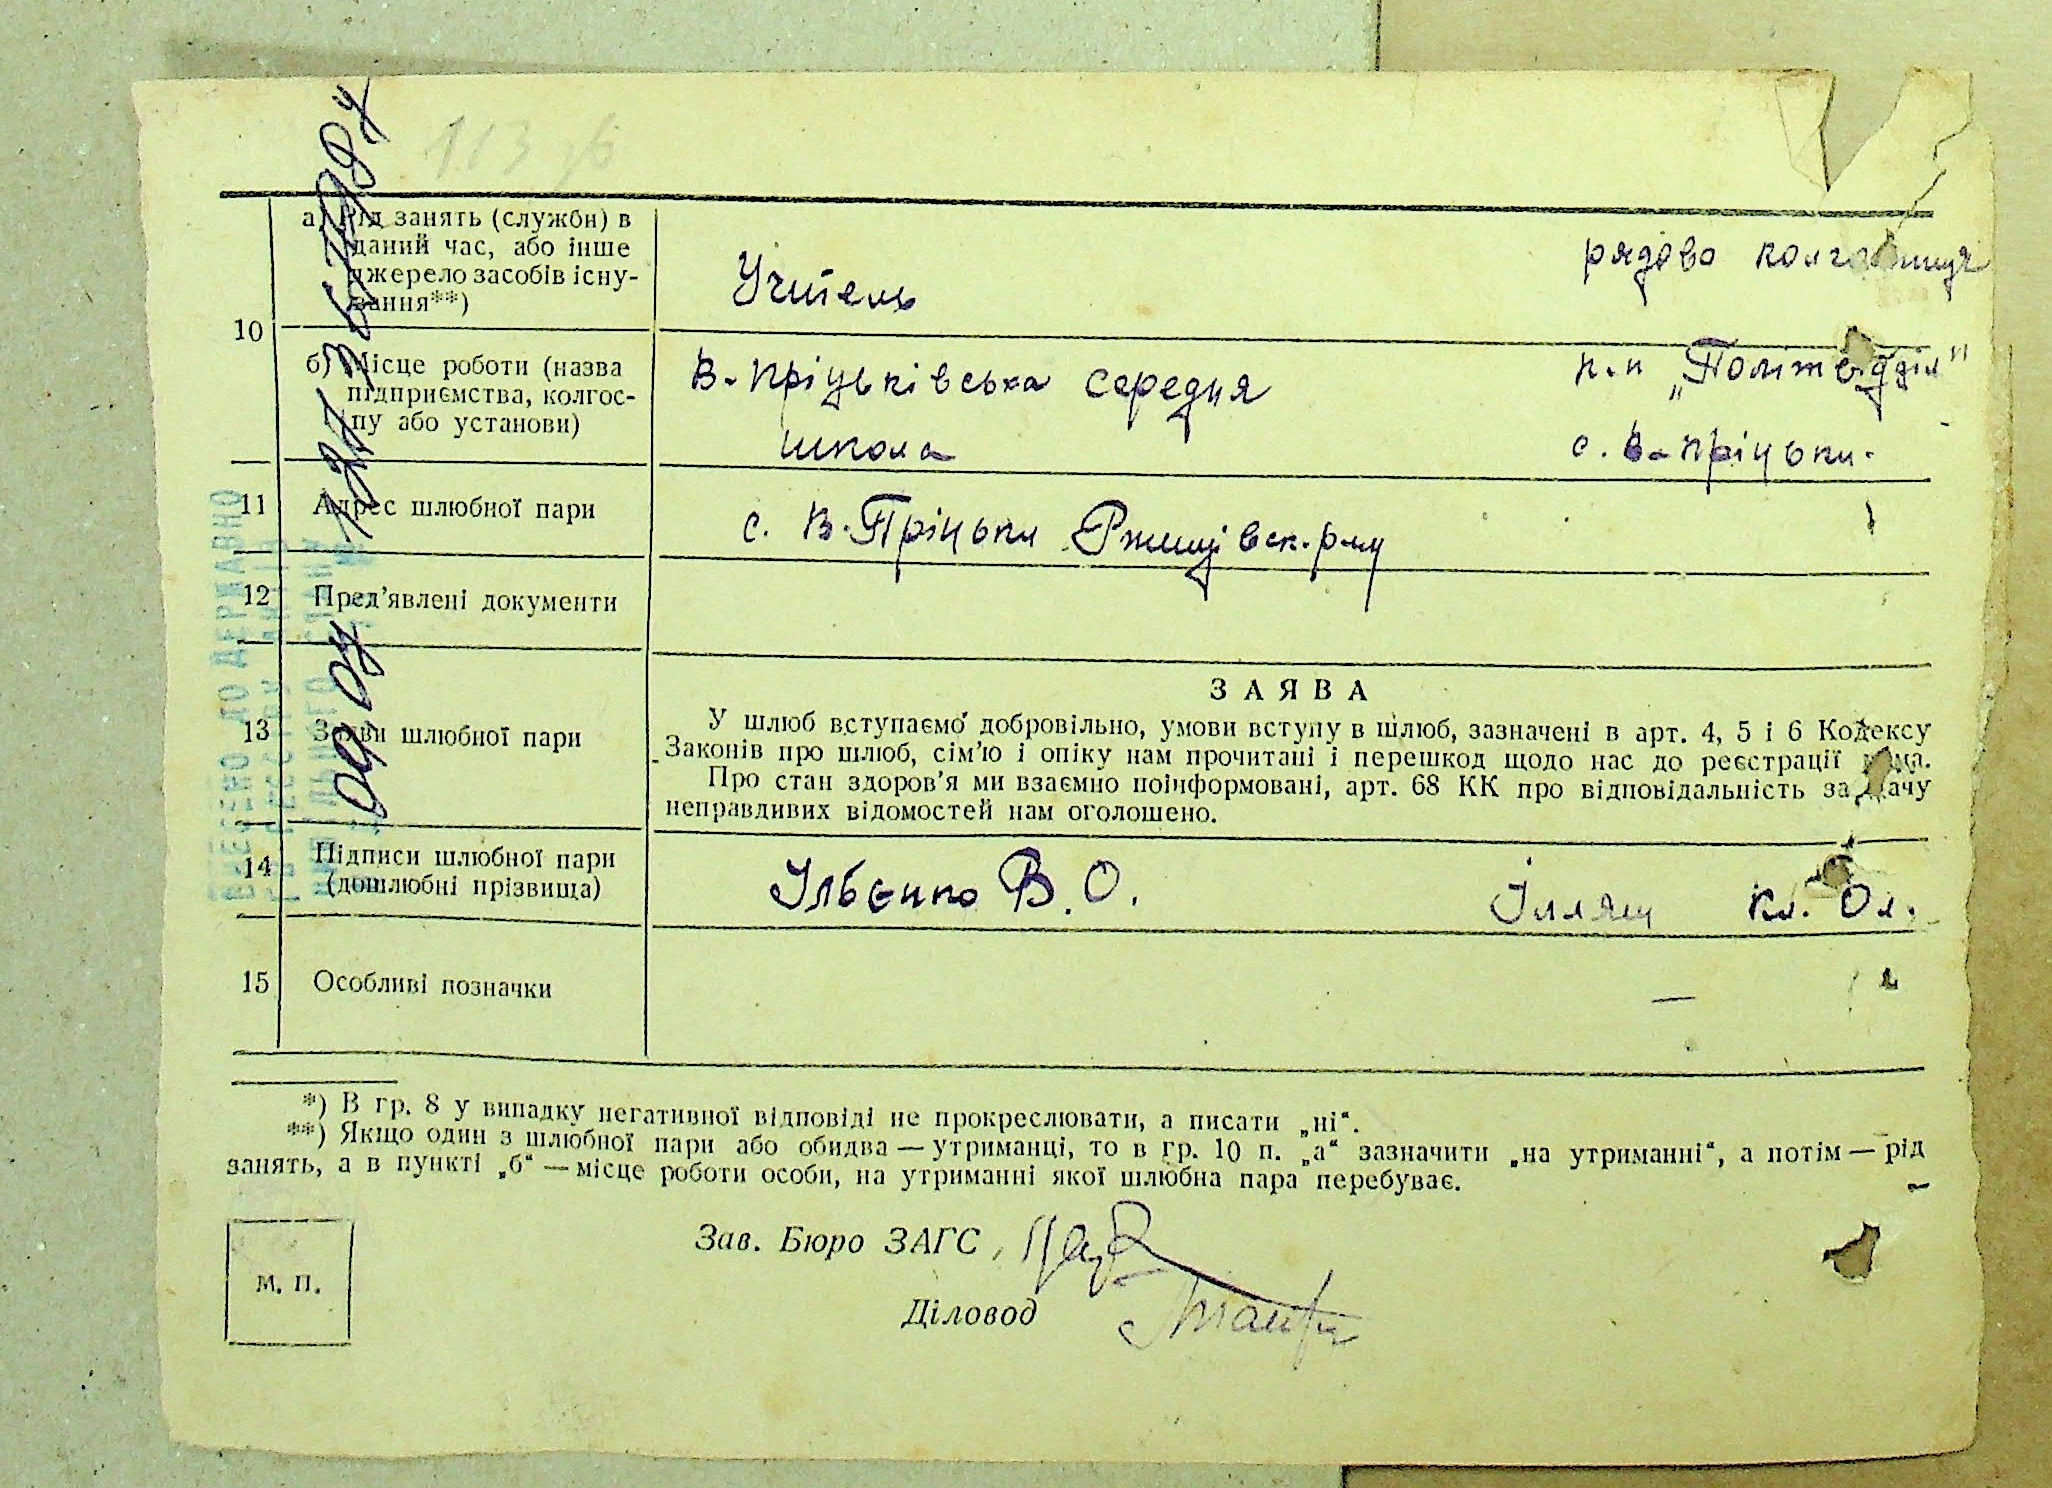 113 зв
10
а) Рід занять (служби) в
даний час, або інше
джерело засобів існу-
вання**)
Учитель
рядова колгоспниця
б) Місце роботи (назва
підприємства, колгос-
пу або установи)
В-Пріцьківська середня
школа
к-п „Політвідділ"
с. В-Пріцьки.
11 Адрес шлюбної пари
с. В-Пріцьки Ржищівск. р-ну
12 Пред’явлені документи
13 Заяви шлюбної пари
ЗАЯВА
У шлюб вступаємо добровільно, умови вступу в шлюб, зазначені в арт. 4, 5 і 6 Кодексу
Законів про шлюб, сім’ю і опіку нам прочитані і перешкод щодо нас до реєстрації нема.
Про стан здоров’я ми взаємно поінформовані, арт. 68 КК про відповідальність за дачу
неправдивих відомостей нам оголошено.
14 Підписи шлюбної пари
(дошлюбні прізвища)
Ільєнко В. О.
Ілляш Кл. Ол.
15 Особливі позначки
—
*) В гр. 8 у випадку негативної відповіді не прокреслювати, а писати „ні“.
**) Якщо один з шлюбної пари або обидва — утриманці, то в гр. 10 п. „а“ зазначити „на утриманні“, а потім — рід
занять, а в пункті „б“ — місце роботи особи, на утриманні якої шлюбна пара перебуває.
Зав. Бюро ЗАГС
Діловод
М. П.
ВНЕСЕНО ДО ДЕРЖАВНО